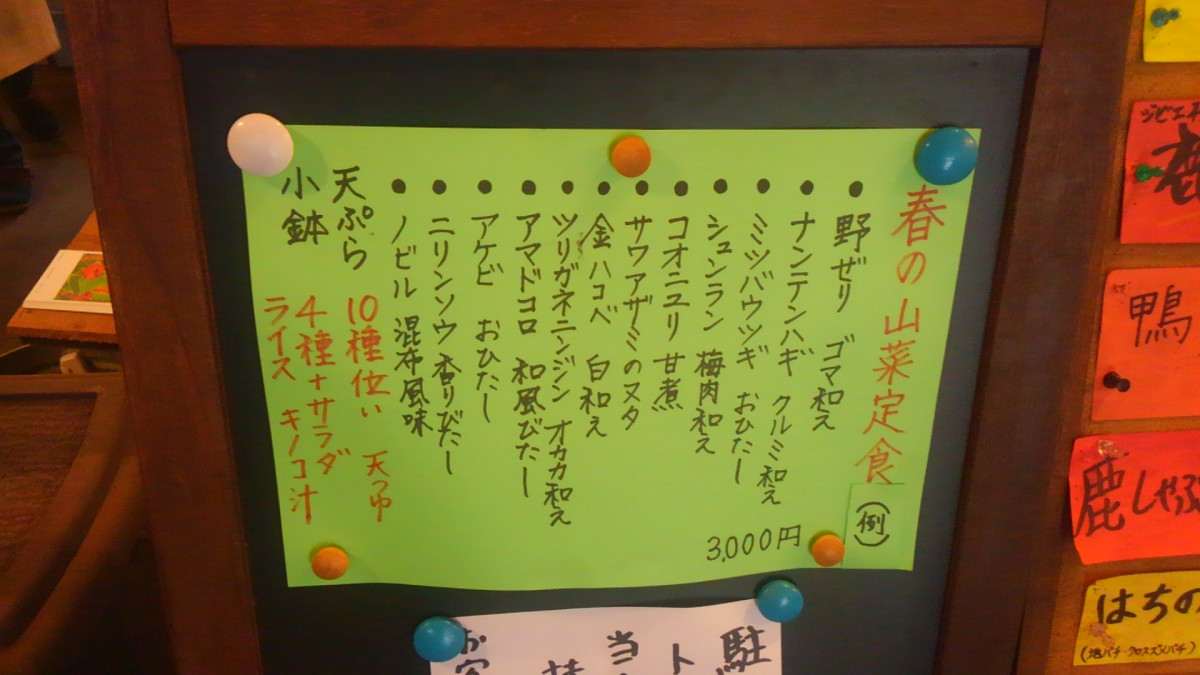 春の山菜定食
(例)
野ぜり ゴマ和え
ナンテンハギ クルミ和え
ミツバウツギ おひたし
シュンラン 梅肉和え
コオニユリ 甘煮
サワアザミのヌタ
金ハコベ 白和え
ツリガネニンジン オカカ和え
アマドコロ 和風びたし
アケビ おひたし
ニリンソウ 香りびたし
ノビル 混布風味
天ぷら 10種位い 天つゆ
小鉢 4種+サラダ
ライス キノコ汁
3,000円
ジビエ
鹿
鴨
鹿しゃぶ
はちの
(地バチ・クロスズメバチ)
駐
ト
当
お